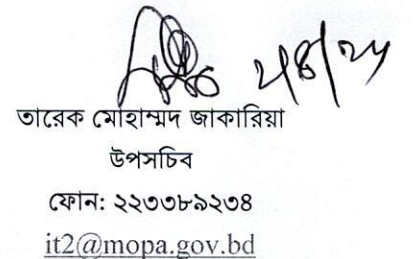 তারেক মোহাম্মদ জাকারিয়া
উপসচিব
ফোন: ২২৩৩৮৯২৩৪
it2@mopa.gov.bd